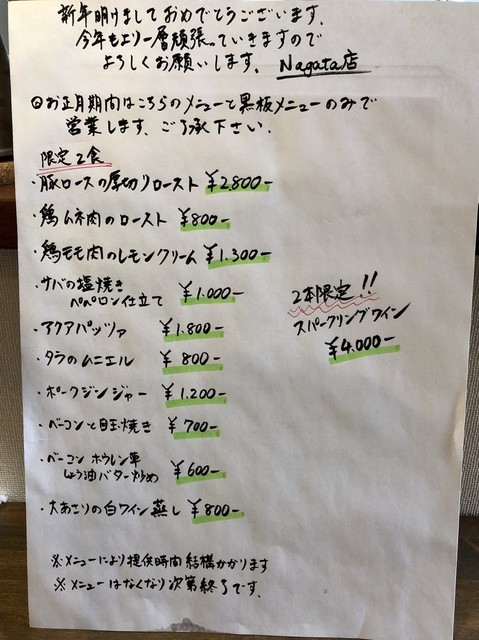 新年明けましておめでとうございます.
今年もより一層頑張っていきますので
よろしくお願いします. Nagata店
◎お正月期内はこちらのメニューと黒板メニューのみで
営業します. ご了承下さい.
限定2食
・豚ロースの厚切りロースト ¥2.800-
・鶏ムネ肉のロースト ¥800-
・鶏モモ肉のレモンクリーム ¥1.300-
・サバの塩焼き
ペペロン仕立て ¥1.000-
・アクアパッツァ ¥1.800-
・タラのムニエル ¥800-
・ポークジンジャー ¥1.200-
・ベーコンと目玉焼き ¥700-
・ベーコン ホウレン草
しょう油バター炒め ¥600-
・大あさりの白ワイン蒸し ¥800-
2本限定!!
スパークリングワイン
¥4.000-
※メニューにより提供時間結構かかります
※メニューはなくなり次第終了です.